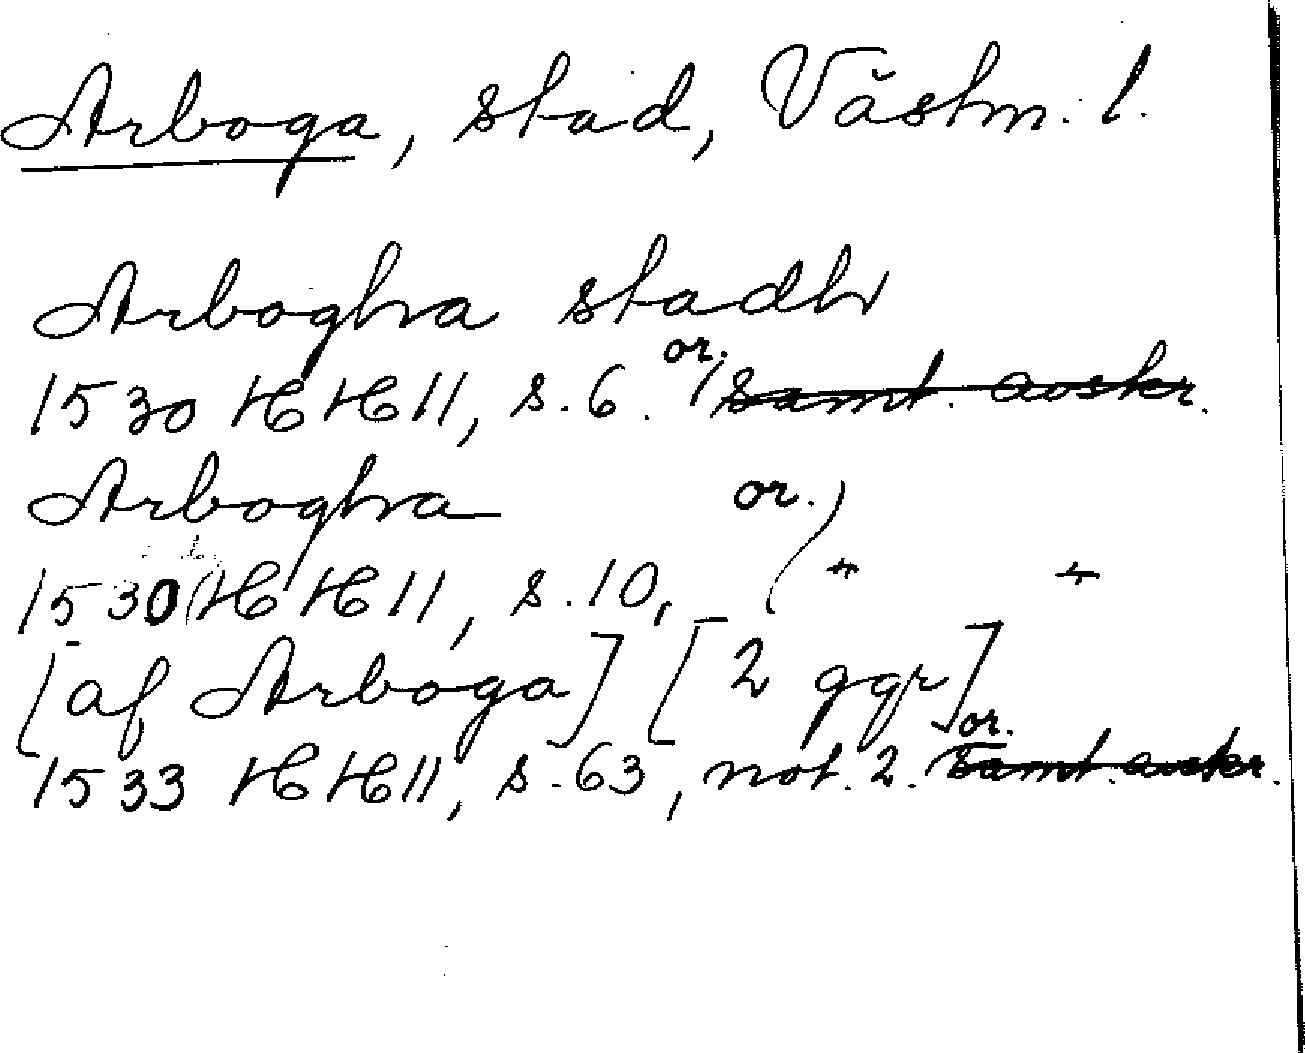 Arboga, stad, Västm. l.
Arbogha stadh
1530 HH 11, s. 6. or. samt. avskr.
Arbogha or.
1530 HH 11, s. 10, " "
[af Arboga] [2 ggr]
1533 HH 11, s. 63, not. 2. or. samt. avskr.